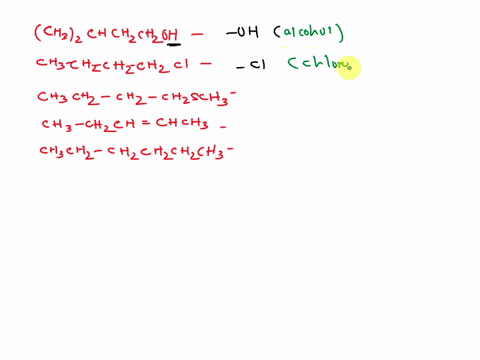 (CH3)2 CH CH2CH2OH — -OH (alcohol)
CH3CH2CH2CH2 Cl — -Cl (chloro
CH3 CH2 - CH2 - CH2SCH3 -
CH3 - CH2CH = CHCH3 -
CH3CH2 - CH2CH2CH2CH3 -